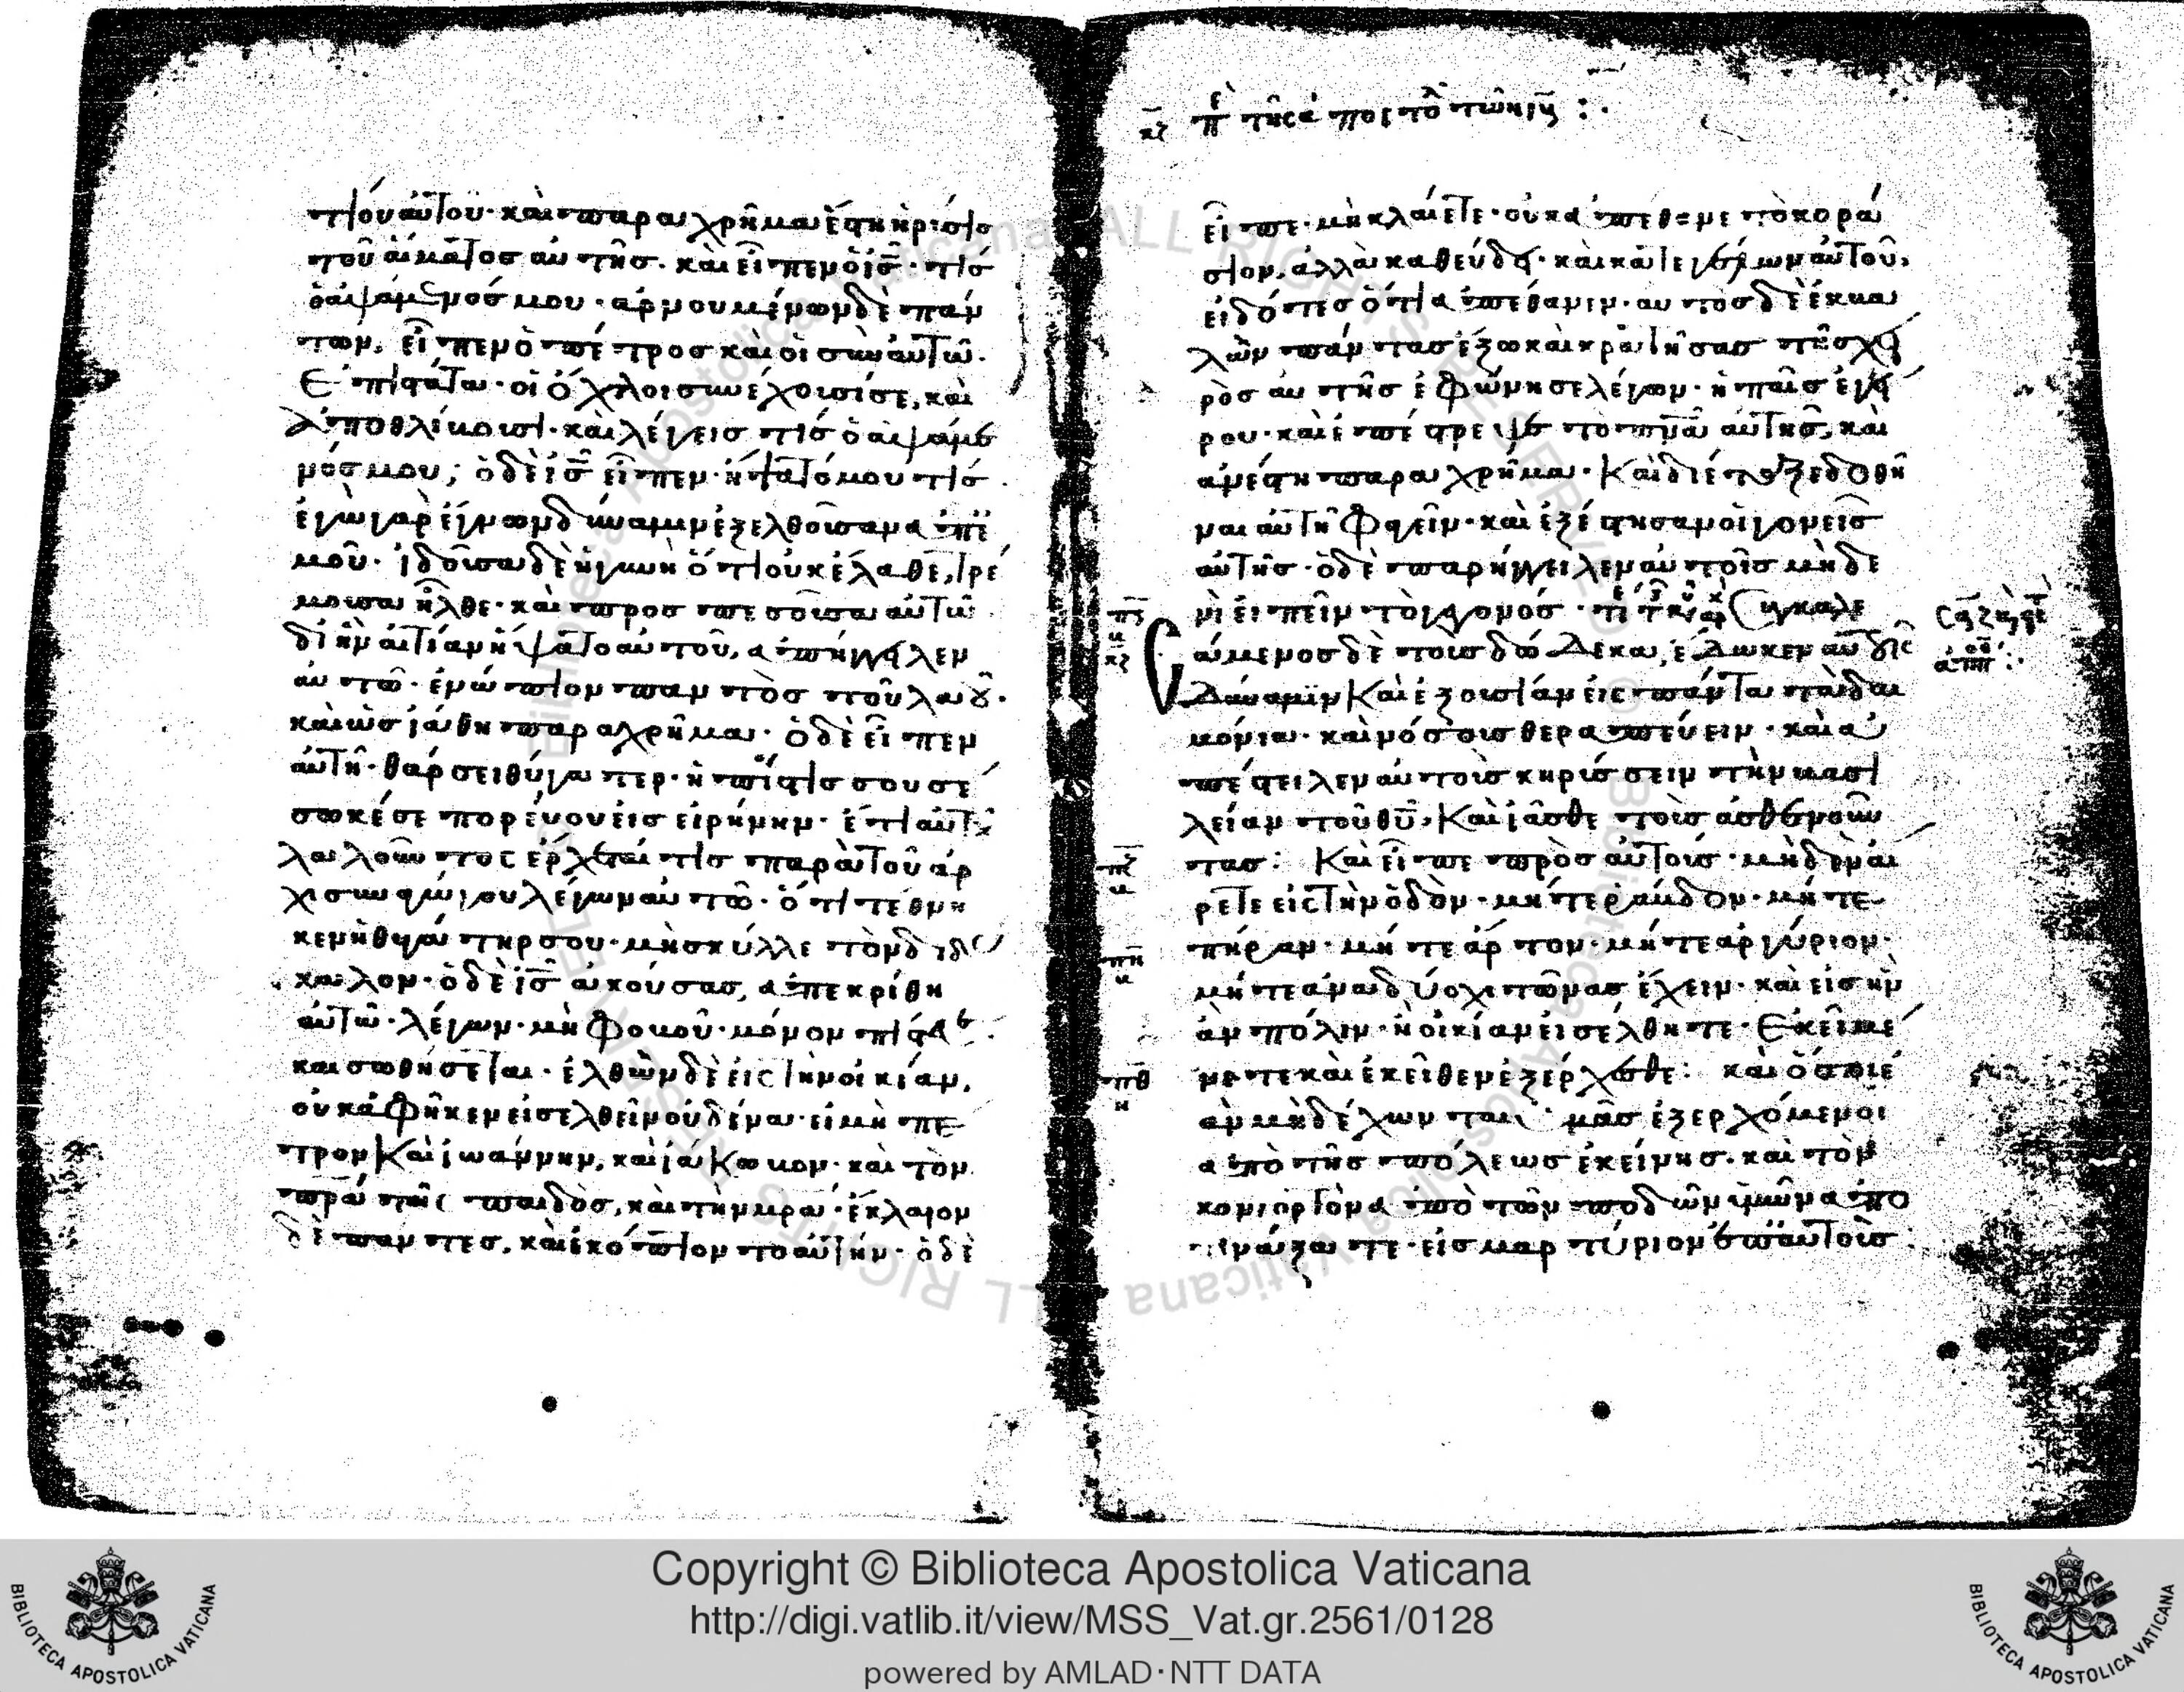 τίου αὐτοῦ· καὶ παραχρῆμα ἔστη ἡ ρύσις
τοῦ αἵματος αὐτῆς. καὶ εἶπεν ὁ ι̅ς̅· τίς
ὁ ἁψάμενός μου· ἀρνουμένων δὲ πάν
των, εἶπεν ὁ πέτρος καὶ οἱ σὺν αὐτῶ·
Ἐπιστάτα· οἱ ὄχλοι συνέχουσί σε, καὶ
ἀποθλίβουσι· καὶ λέγεις τίς ὁ ἁψάμε
νός μου; ὁ δὲ ι̅ς̅ εἶπεν· ἥψατό μου τίς·
ἐγὼ γὰρ ἔγνων δύναμιν ἐξελθοῦσαν ἀπ
μοῦ· ἰδοῦσα δὲ ἡ γυνὴ ὅτι οὐκ ἔλαθε, τρέ
μουσα ἦλθε· καὶ προσπεσοῦσα αὐτῶ
δι ἣν αἰτίαν ἥψατο αὐτοῦ, ἀπήγγειλεν
αὐτῶ· ἐνώπιον παντὸς τοῦ λαοῦ·
καὶ ὡς ἰάθη παραχρῆμα· ὁ δὲ εἶπεν
αὐτῆ· θάρσει θύγατερ· ἡ πίστις σου σέ
σωκέ σε πορεύου εἰς εἰρήνην· ἔτι αὐτοῦ
λαλοῦντος ἔρχεται τίς παρὰ τοῦ ἀρ
χισυναγώγου λέγων αὐτῶ· ὅτι τέθνη
κεν ἡ θυγάτηρ σου· μὴ σκύλλε τὸν διδά
σκαλον· ὁ δὲ ι̅ς̅ ἀκούσας, ἀπεκρίθη
αὐτῶ· λέγων· μὴ φοβοῦ· μόνον πίστευε
καὶ σωθήσεται· ἐλθὼν δὲ εἰς τὴν οἰκίαν,
οὐκ ἀφῆκεν εἰσελθεῖν οὐδένα· εἰ μὴ πέ
τρον καὶ ἰωάννην, καὶ ἰάκωβον· καὶ τὸν
π̅ρ̅α τῆς παιδὸς, καὶ τὴν μ̅ρ̅α· ἔκλαιον
δὲ πάντες, καὶ ἐκόπτοντο αὐτήν· ὁ δὲ
κζ πε τῆς ἀποστολ τῶν ιβ :·
εἶπε· μὴ κλαίετε· οὐκ ἀπέθανε τὸ κορά
σιον, ἀλλὰ καθεύδει· καὶ κατεγέλων αὐτοῦ,
εἰδότες ὅτι ἀπέθανεν· αὐτὸς δὲ ἐκβα
λὼν πάντας ἔξω καὶ κρατήσας τῆς χει
ρὸς αὐτῆς ἐφώνησε λέγων· ἡ παῖς ἐγεί
ρου· καὶ ἐπέστρεψε τὸ π̅ν̅α αὐτῆς, καὶ
ἀνέστη παραχρῆμα· καὶ διέταξε δοθῆ
ναι αὐτῆ φαγεῖν· καὶ ἐξέστησαν οἱ γονεῖς
αὐτῆς· ὁ δὲ παρήγγειλεν αὐτοῖς μηδε
νὶ εἰπεῖν τὸ γεγονός· Συγκαλε
σάμενος δὲ τοὺς δώδεκα, ἔδωκεν αὐτοῖς
δύναμιν καὶ ἐξουσίαν εἰς πάντα τὰ δαι
μόνια· καὶ νόσους θεραπεύειν· καὶ ἀ
πέστειλεν αὐτοὺς κηρύσσειν τὴν βασι
λείαν τοῦ θ̅υ̅, καὶ ἰᾶσθε τοὺς ἀσθενοῦν
τας: καὶ εἶπε πρὸς αὐτούς· μηδὲν αἴ
ρετε εἰς τὴν ὁδὸν· μήτε ράβδον· μήτε
πήραν· μήτε ἄρτον· μήτε ἀργύριον·
μήτε ἀνὰ δύο χιτῶνας ἔχειν· καὶ εἰς ἣν
ἂν πόλιν· ἢ οἰκίαν εἰσέλθητε· Ἐκεῖ μέ
νετε καὶ ἐκεῖθεν ἐξέρχεσθε: καὶ ὅσοι ἐ
ὰν μὴ δέχωνται ὑμᾶς ἐξερχόμενοι
ἀπὸ τῆς πόλεως ἐκείνης. καὶ τὸν
κονιορτὸν ἀπὸ τῶν ποδῶν ὑμῶν ἀπο
τινάξατε· εἰς μαρτύριον ἐπ αὐτούς.
πς
πζ
πη
πθ
Copyright © Biblioteca Apostolica Vaticana
http://digi.vatlib.it/view/MSS_Vat.gr.2561/0128
powered by AMLAD·NTT DATA
BIBLIOTECA APOSTOLICA VATICANA
BIBLIOTECA APOSTOLICA VATICANA